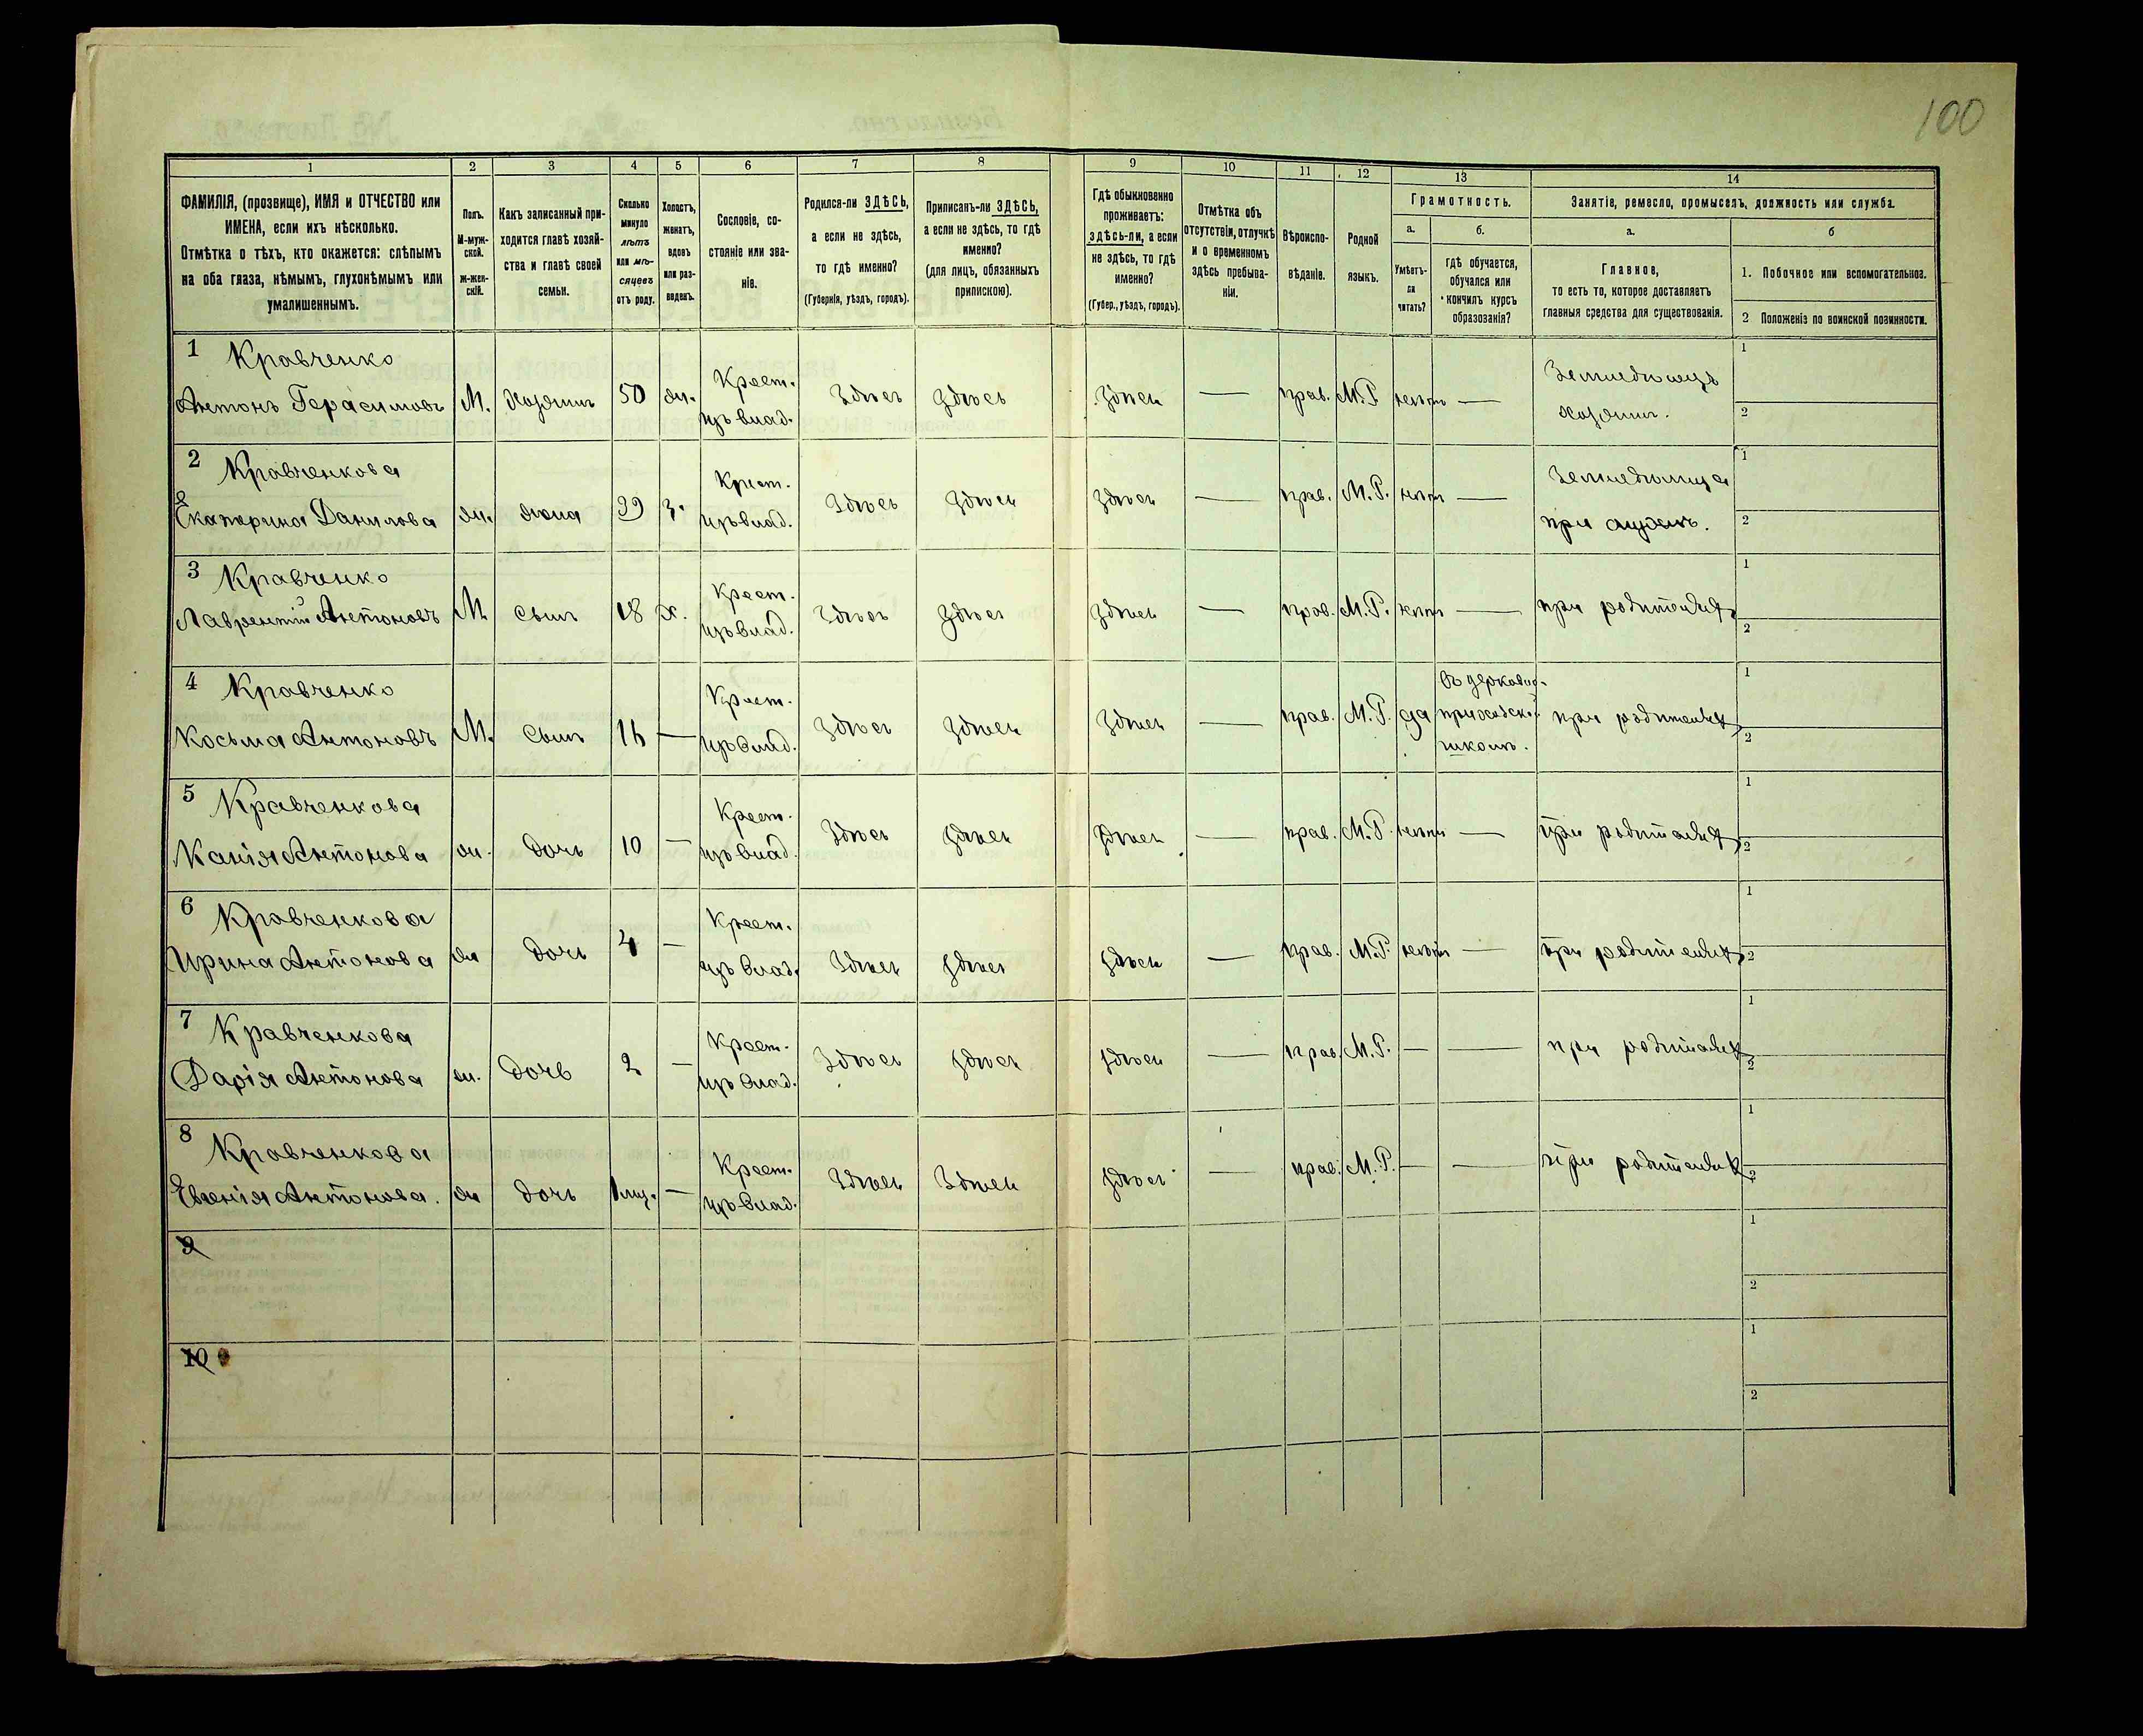 100
1
2
3
4
5
6
7
8
9
10
11
12
13
14
ФАМИЛІЯ, (прозвище), ИМЯ и ОТЧЕСТВО или
ИМЕНА, если ихъ нѣсколько.
Отмѣтка о тѣхъ, кто окажется: слѣпымъ
на оба глаза, нѣмымъ, глухонѣмымъ или
умалишеннымъ.
Полъ.
М-муж-
ской.
ж-жен-
скій.
Какъ записанный при-
ходится главѣ хозяй-
ства и главѣ своей
семьи.
Сколько
минуло
лѣтъ
или мѣ-
сяцевъ
отъ роду.
Холостъ,
женатъ,
вдовъ
или раз-
веденъ.
Сословіе, со-
стояніе или зва-
ніе.
Родился-ли ЗДѢСЬ,
а если не здѣсь,
то гдѣ именно?
(Губернія, уѣздъ, городъ).
Приписанъ-ли ЗДѢСЬ,
а если не здѣсь, то гдѣ
именно?
(для лицъ, обязанныхъ
припискою).
Гдѣ обыкновенно
проживаетъ:
здѣсь-ли, а если
не здѣсь, то гдѣ
именно?
(Губер., уѣздъ, городъ).
Отмѣтка объ
отсутствіи, отлучкѣ
и о временномъ
здѣсь пребыва-
ніи.
Вѣроиспо-
вѣданіе.
Родной
языкъ.
Грамотность.
а.
б.
Умѣетъ-
ли
читать?
гдѣ обучается,
обучался или
кончилъ курсъ
образованія?
Занятіе, ремесло, промыселъ, должность или служба.
а.
б
Главное,
то есть то, которое доставляетъ
главныя средства для существованія.
1. Побочное или вспомогательное.
2 Положеніе по воинской повинности.
1 Кравченко
Антонъ Герасимовъ М. Хозяинъ 50 ж. Крест. изъ влад. Здѣсь Здѣсь Здѣсь — прав. М.Р. нетъ — Земледѣлецъ
хозяинъ. 1 2
2 Кравченкова
Екатерина Данилова ж. жена 39 з. Крест. изъ влад. Здѣсь Здѣсь Здѣсь — прав. М.Р. нетъ — Земледѣлица
при мужѣ. 1 2
3 Кравченко
Лаврентій Антоновъ М. сынъ 18 х. Крест. изъ влад. Здѣсь Здѣсь Здѣсь — прав. М.Р. нетъ — при родителяхъ 1 2
4 Кравченко
Косьма Антоновъ М. сынъ — Крест. изъ влад. Здѣсь Здѣсь Здѣсь — прав. М.Р. да въ церковно-
приходской
школѣ. при родителяхъ 1 2
5 Кравченкова
Антонова ж. дочь 10 — Крест. изъ влад. Здѣсь Здѣсь Здѣсь — прав. М.Р. нетъ — при родителяхъ 1 2
6 Кравченкова
Ирина Антонова ж дочь 4 — Крест. изъ влад. Здѣсь Здѣсь Здѣсь — прав. М.Р. нетъ — при родителяхъ 1 2
7 Кравченкова
Дарія Антонова ж. дочь 2 — Крест. изъ влад. Здѣсь Здѣсь Здѣсь — прав. М.Р. — — при родителяхъ 1 2
8 Кравченкова
Евгенія Антонова. ж дочь 1 мц. — Крест. изъ влад. Здѣсь Здѣсь Здѣсь — прав. М.Р. — — при родителяхъ 1 2
9 1 2
10 1 2